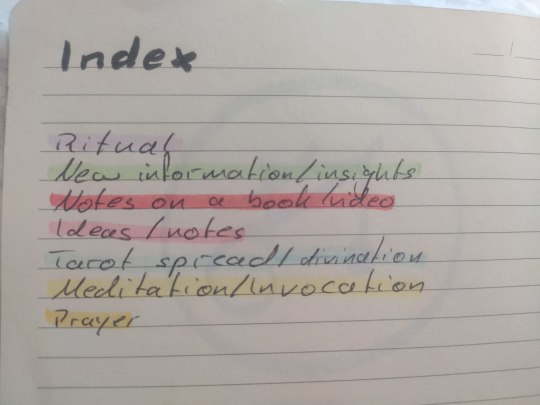 Index
Ritual
New information/insights
Notes on a book/video
Ideas/notes
Tarot spread/divination
Meditation/Invocation
Prayer